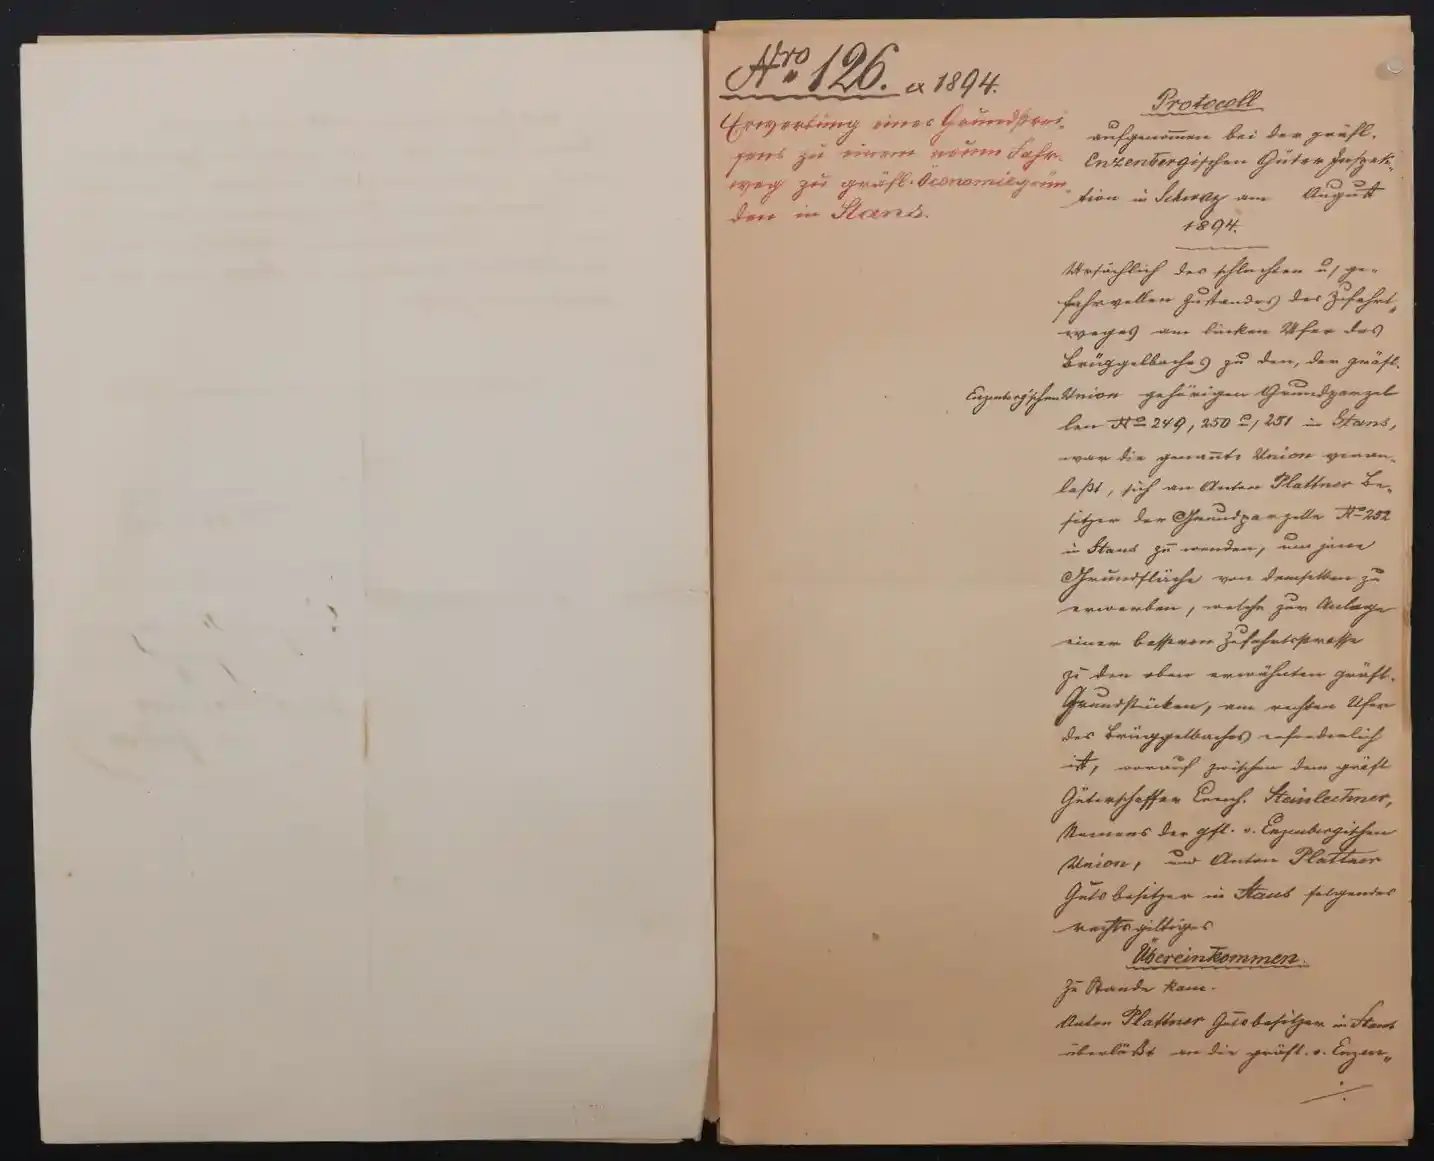 Nro 126. ex 1894.
Erwerbung eines Grundstrei-
fens zu einem neuen Fahr-
weg zu gräfl. Öconomiegrün-
den in Stans.
Protocoll
aufgenommen bei der gräfl.
Enzenbergischen Güter Inspek-
tion in Schwaz am August
1894.
Ursächlich des schlechten u, ge-
fahrvollen Zustandes des Zufahrt-
weges am linken Ufer des
Brüggelbaches zu den, der gräfl.
Enzenberg'schen Union gehörigen Grundparzel
len No 249, 250 u, 251 in Stans,
war die genannte Union veran-
laßt, sich an Anton Plattner Be-
sitzer der Grundparzelle No 252
in Stans zu wenden, um jene
Grundfläche von demselben zu
erwerben, welche zur Anlage
einer besseren Zufahrtsstrasse
zu den oben erwähnten gräfl.
Grundstücken, am rechten Ufer
des Brüggelbaches erforderlich
ist, worauf zwischen dem gräfl
Güterschaffer Steinlechner,
Namens der gfl. v. Enzenbergischen
Union, und Anton Plattner
Gutsbesitzer in Stans folgendes
rechtsgiltiges
Übereinkommen.
zu Stande kam.
Anton Plattner Gutsbesitzer in Stans
überläßt an die gräfl. v. Enzen-